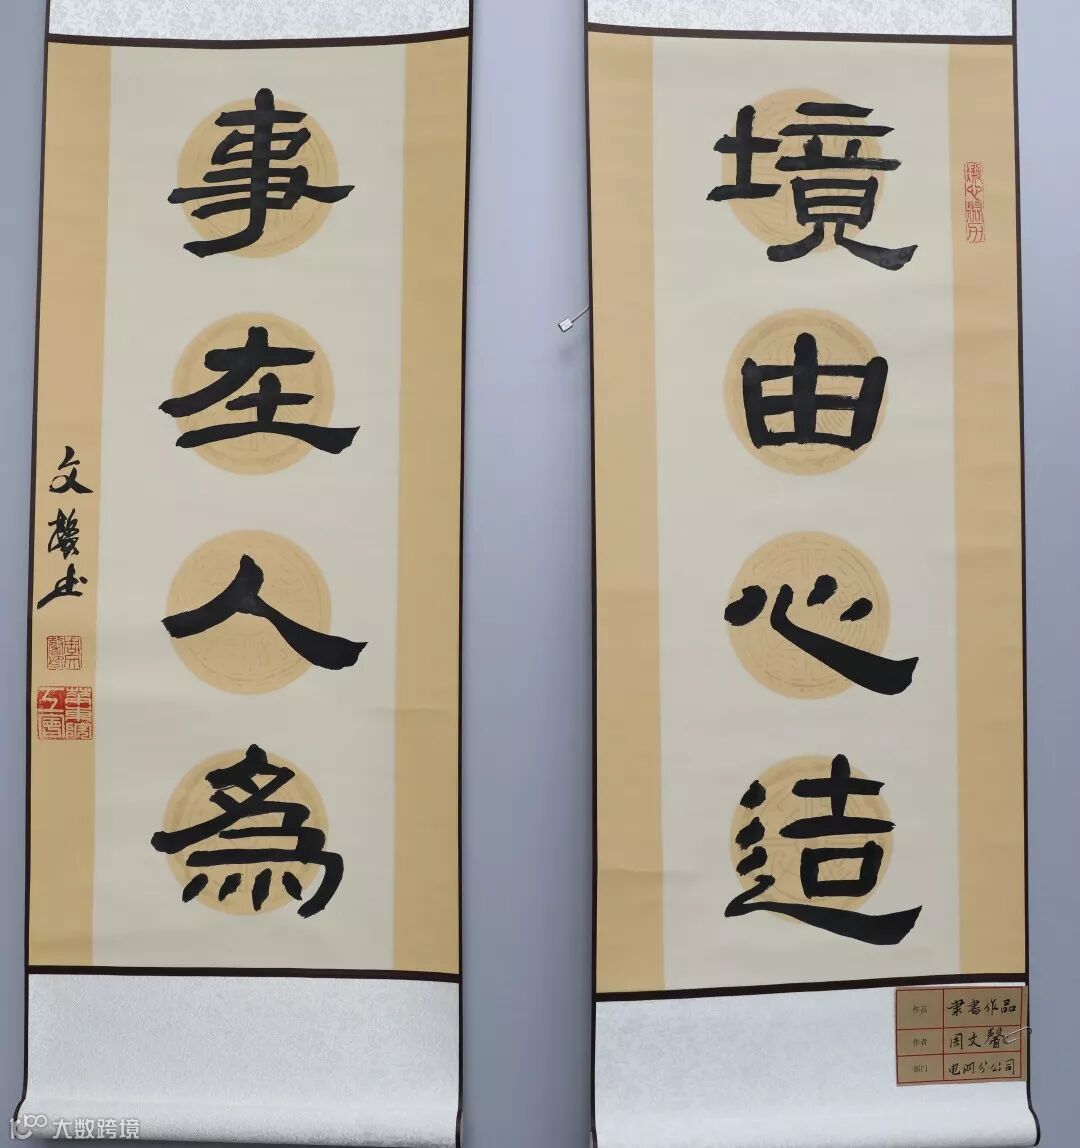 境由心造
事在人為
文馨书
作品 隶書作品
作者 周文馨
部门 电网分公司
大数跨境